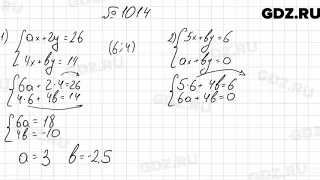 GDZ.RU
№ 1014
1) { ax + 2y = 26
{ 4x + by = 14
(6; 4)
{ 6a + 2·4 = 26
{ 4·6 + 4b = 14
{ 6a = 18
{ 4b = -10
a = 3 b = -2,5
2) { 5x + by = 6
{ ax + by = 0
{ 5·6 + 4b = 6
{ 6a + 4b = 0